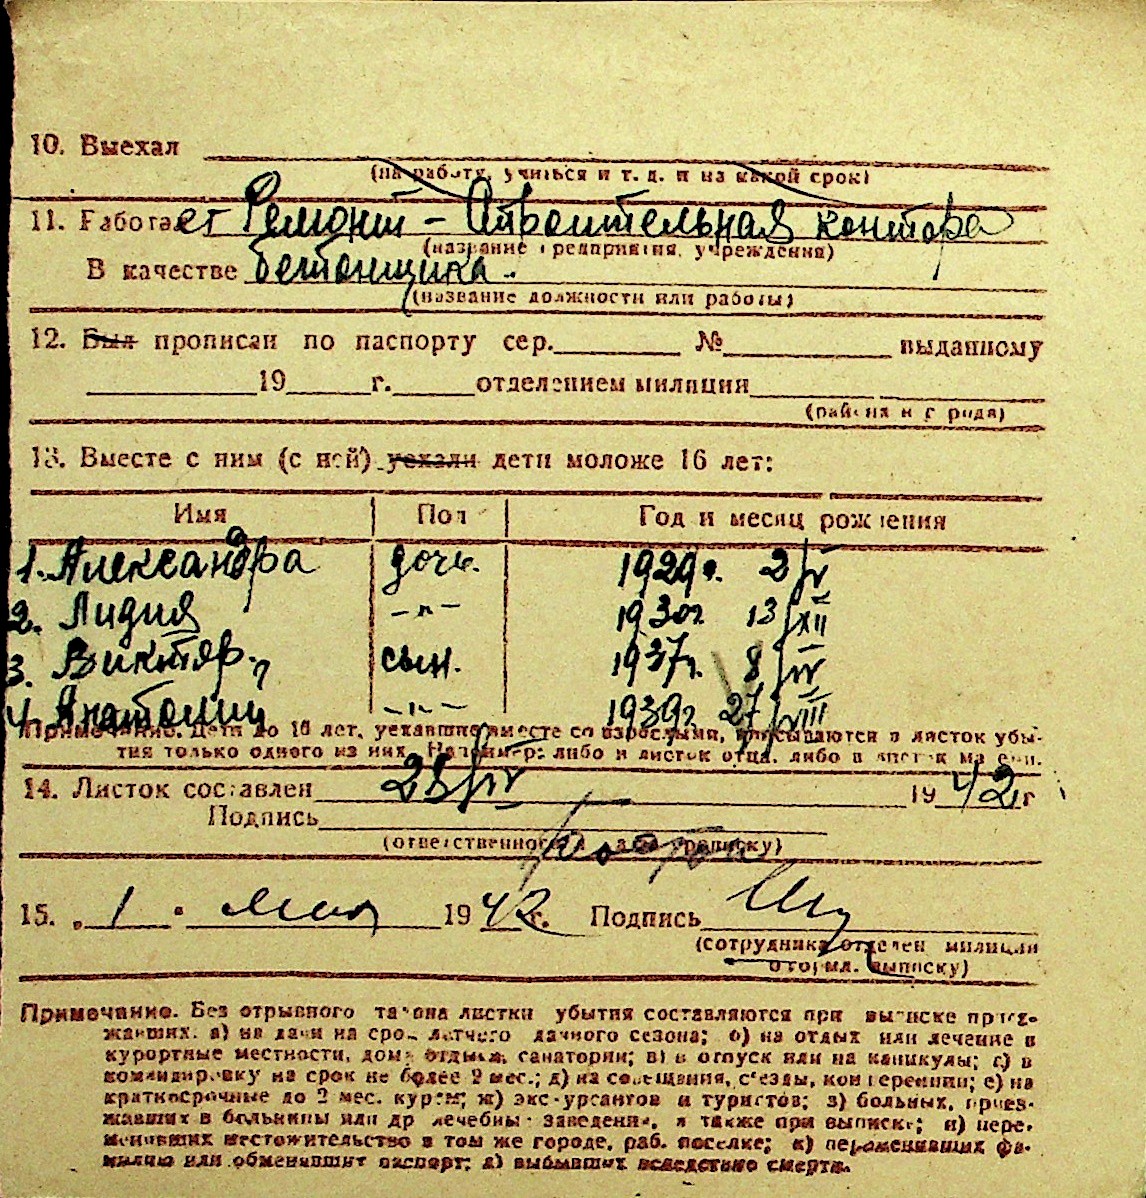 10. Выехал
(на работу, учиться и т. д. и на какой срок)
11. Работает Ремонт - Строительная контора
(название предприятия, учреждения)
В качестве бетонщика.
(название должности или работы)
12. Был прописан по паспорту сер. № выданному
19 г. отделением милиции
(района и города)
13. Вместе с ним (с ней) уехали дети моложе 16 лет:
Имя Пол Год и месяц рождения
1. Александра дочь. 1929г. 2/IV
2. Лидия -"- 1930г 13/XII
3. Виктор. сын. 1937г. 8/IV
4. Анатолий -"- 1939г 27/VIII
Примечание. Дети до 16 лет, уехавшие вместе со взрослыми, вписываются в листок убы-
тия только одного из них. Например: либо в листок отца, либо в листок матери.
14. Листок составлен 28/IV 1942 г
Подпись
(ответственного за прописку)
15. „1" мая 1942 г. Подпись
(сотрудника отделен милиции
оформл. выписку)
Примечание. Без отрывного талона листки убытия составляются при выписке приез-
жавших: а) на дачи на срок летнего дачного сезона; б) на отдых или лечение в
курортные местности, дома отдыха, санатории; в) в отпуск или на каникулы; г) в
командировку на срок не более 2 мес.; д) на совещания, с'езды, конференции; е) на
краткосрочные до 2 мес. курсы; ж) экскурсантов и туристов; з) больных, приез-
жавших в больницы или др лечебные заведения, а также при выписке; и) пере-
менивших местожительство в том же городе, раб. поселке; к) переменивших фа-
милию или обменявших паспорт; л) выбывших вследствие смерти.